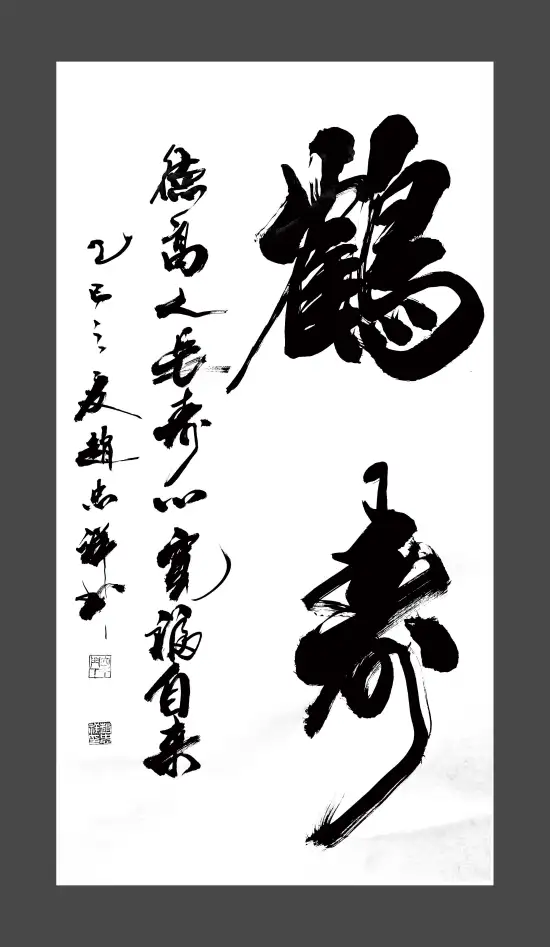 鶴寿
德高人长寿心宽福自来
乙巳之夏趙忠祥书